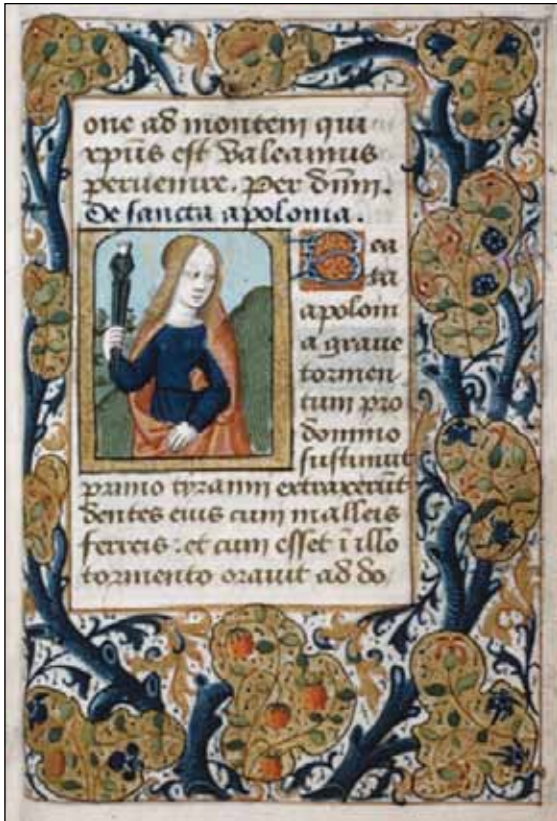 one ad montem qui
xp̄us est Valeamus
peruenire. Per dn̄m.
De sancta apolonia.
Bea
ta
apoloni
a graue
tormen
tum pro
domino
sustinuit
primo tyranni extraxerūt
dentes eius cum malleis
ferreis: et cum esset ī illo
tormento orauit ad do